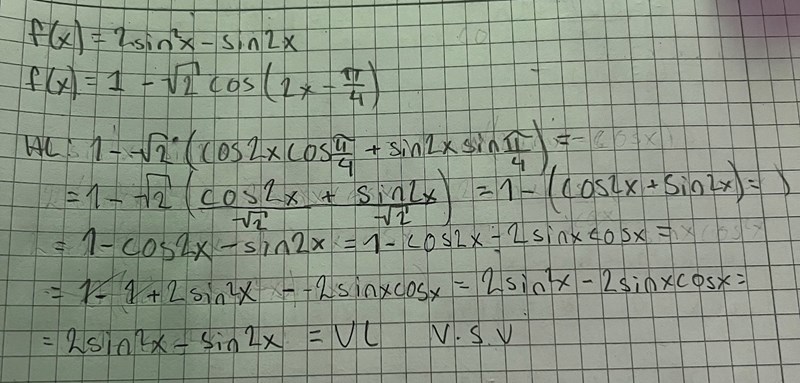 f(x) = 2sin²x - sin2x
f(x) = 1 - √2 cos(2x - π/4)
HL: 1 - √2 (cos2x cos π/4 + sin2x sin π/4) =
= 1 - √2 (cos2x/√2 + sin2x/√2) = 1 - (cos2x + sin2x) =
= 1 - cos2x - sin2x = 1 - cos2x - 2sinxcosx =
= 1 - 1 + 2sin²x - 2sinxcosx = 2sin²x - 2sinxcosx =
= 2sin²x - sin2x = VL V.S.V